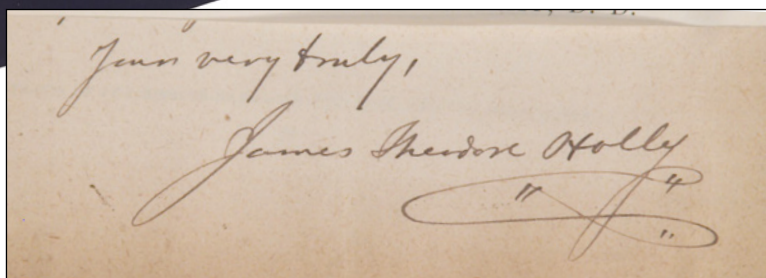 Yours very truly,
James Theodore Holly